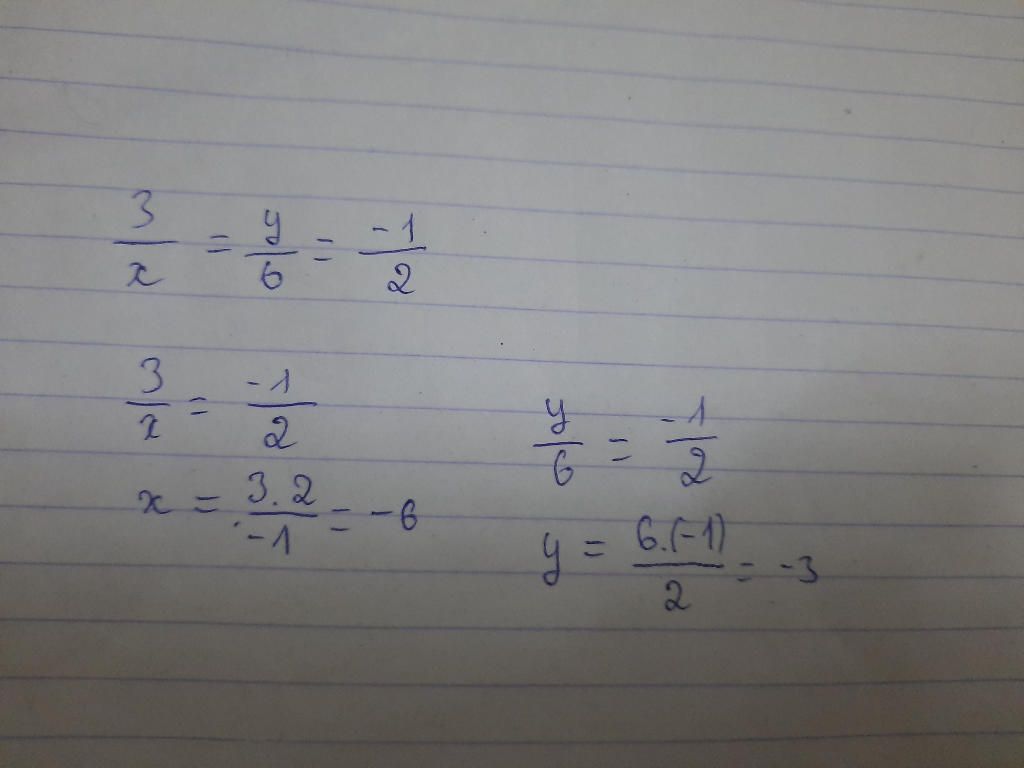 3/x = y/6 = -1/2
3/x = -1/2
x = 3.2/-1 = -6
y/6 = -1/2
y = 6.(-1)/2 = -3